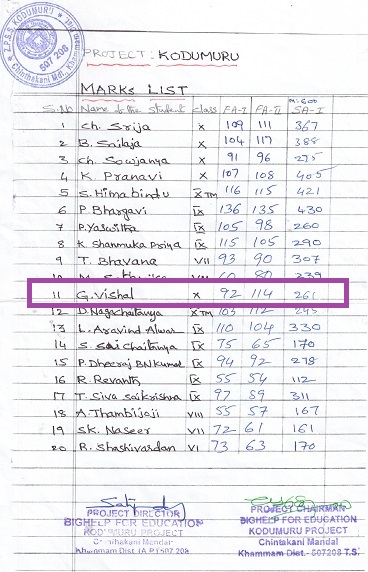 Z.P.S.S. KODUMURU
Chintakani Mdl.
507 208
PROJECT : KODUMURU
MARKS LIST
M:600
S.No Name of the student class FA-I FA-II SA-I
1 Ch. Srija X 109 111 367
2 B. Sailaja X 104 117 388
3 Ch. Sowjanya X 91 96 275
4 K. Pranavi X 107 108 405
5 S. Himabindu X TM 116 115 421
6 P. Bhargavi IX 136 135 430
7 P. Yaswitha IX 105 98 260
8 K. Shanmuka Priya IX 115 105 290
9 T. Bhavana VII 93 90 307
10
11 G. Vishal X 92 114 261
12 D. Nagachaitanya X TM 103 112
13 L. Aravind Alwar IX 110 104 330
14 S. Sai chaitanya IX 75 65 170
15 P. Dheeraj BN kumar IX 94 92 278
16 R. Revanth IX 55 54 112
17 T. Siva saikrishna IX 97 89 311
18 A. Thambisaji VIII 55 57 167
19 SK. Naseer VII 72 61 161
20 R. Shashivardan VI 73 63 170
PROJECT DIRECTOR
BIGHELP FOR EDUCATION
PROJECT
Chintakani Mandal
Khammam Dist (A.P) 507 208
PROJECT CHAIRMAN
BIGHELP FOR EDUCATION
KODUMURU PROJECT
Chintakani Mandal
Khammam Dist.- 507208 T.S.